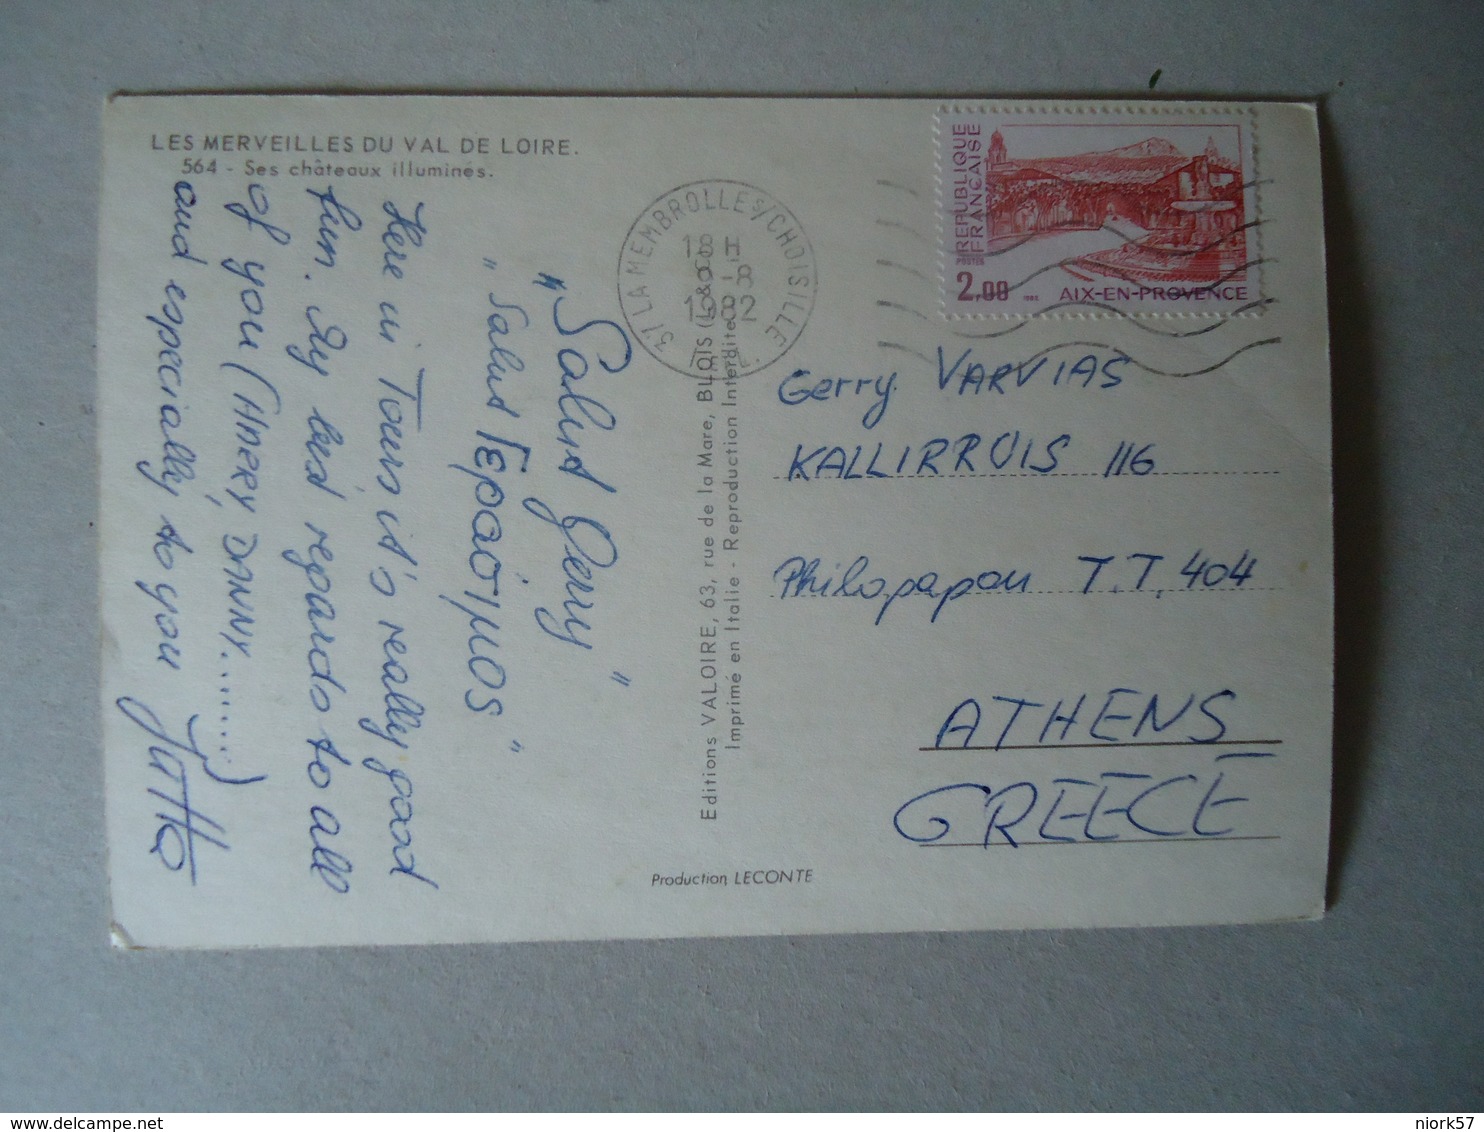 LES MERVEILLES DU VAL DE LOIRE.
564 - Ses châteaux illuminés.
"Salut Gerry"
"Salut Γεράσιμος"
Here in Tours it's really good
fun. My best regards to all
of you (HARRY, DANNY.........)
and especially to you
Jutta
Editions VALOIRE, 63, rue de la Mare, BLOIS (L.&
Imprimé en Italie - Reproduction Interdite
Production LECONTE
37 LA MEMBROLLE S/CHOISILLE
18 H
-8
1982
RÉPUBLIQUE
FRANÇAISE
POSTES
2,00
1982
AIX-EN-PROVENCE
Gerry VARVIAS
KALLIRROIS 116
Philopapou T.T. 404
ATHENS
GREECE
niork57